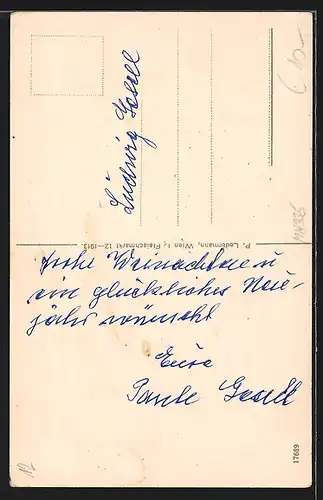 Ludwig Gosell
P. Ledermann, Wien I., Fleischmarkt 12—1913.
frohe Weinachten u
ein glückliches Neu-
jahr wünscht
Eure
Tante Gosell
17689
12